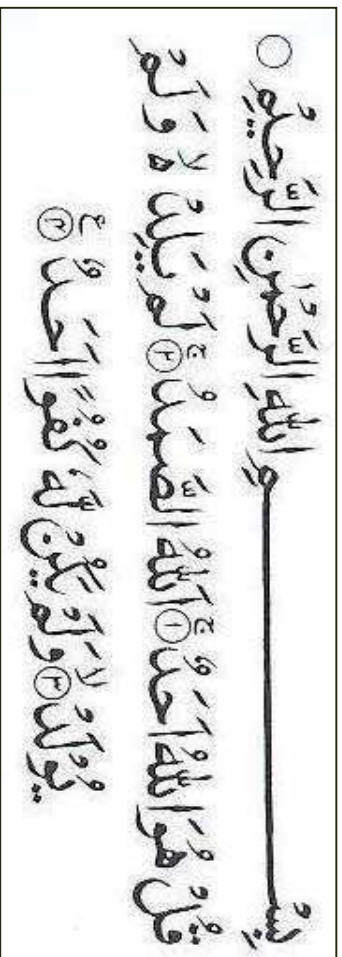 بِسْمِ اللهِ الرَّحْمٰنِ الرَّحِيْمِ ○
قُلْ هُوَ اللهُ اَحَدٌ ۚ ﴿۱﴾ اَللهُ الصَّمَدُ ۚ ﴿۲﴾ لَمْ يَلِدْ ۵ ۙ وَلَمْ
يُوْلَدْ ۙ ﴿۳﴾ وَلَمْ يَكُنْ لَّهٗ كُفُوًا اَحَدٌ ﴿۴﴾ ع